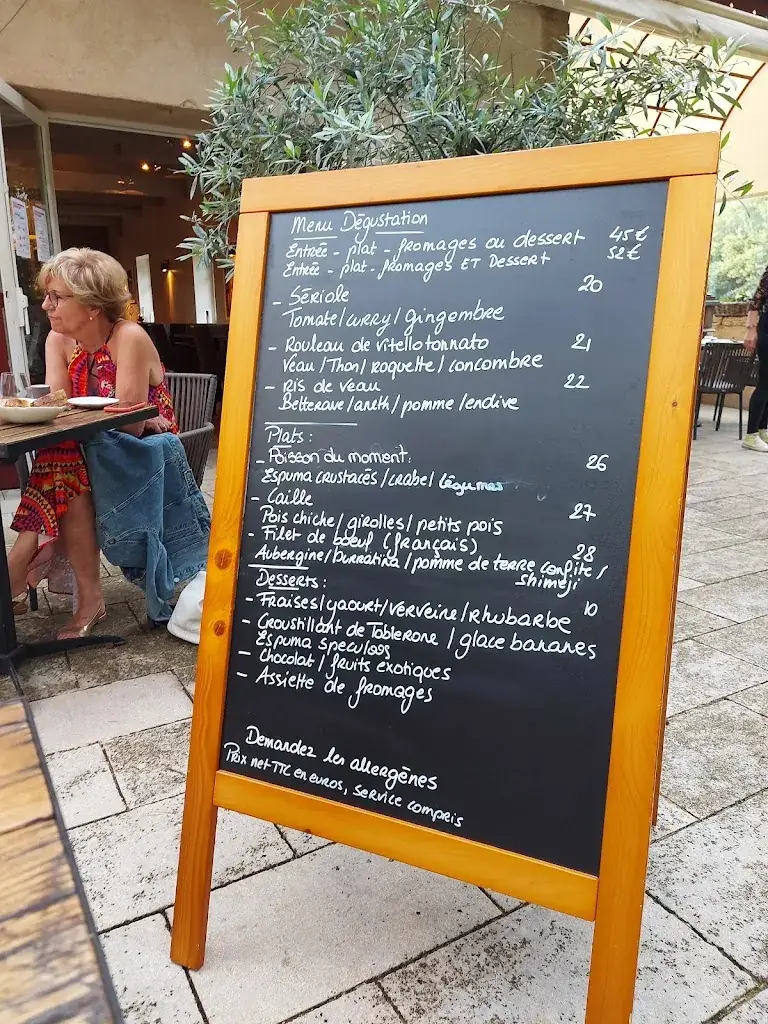 Menu Dégustation
Entrée - plat - fromages ou dessert 45€
Entrée - plat - fromages ET Dessert 52€
- Sériole 20
Tomate/curry/gingembre
- Rouleau de vitello tonnato 21
Veau/Thon/roquette/concombre
- Ris de veau 22
Betterave/aneth/pomme/endive
Plats:
- Poisson du moment: 26
Espuma crustacés/crabe/légumes
- Caille 27
Pois chiche/girolles/petits pois
- Filet de bœuf (français) 28
Aubergine/burratina/pomme de terre confite/
shimeji
Desserts: 10
- Fraises/yaourt/verveine/rhubarbe
- Croustillant de Toblerone/glace bananes
Espuma speculoos
- Chocolat/fruits exotiques
- Assiette de fromages
Demandez les allergènes
Prix net TTC en euros, service compris